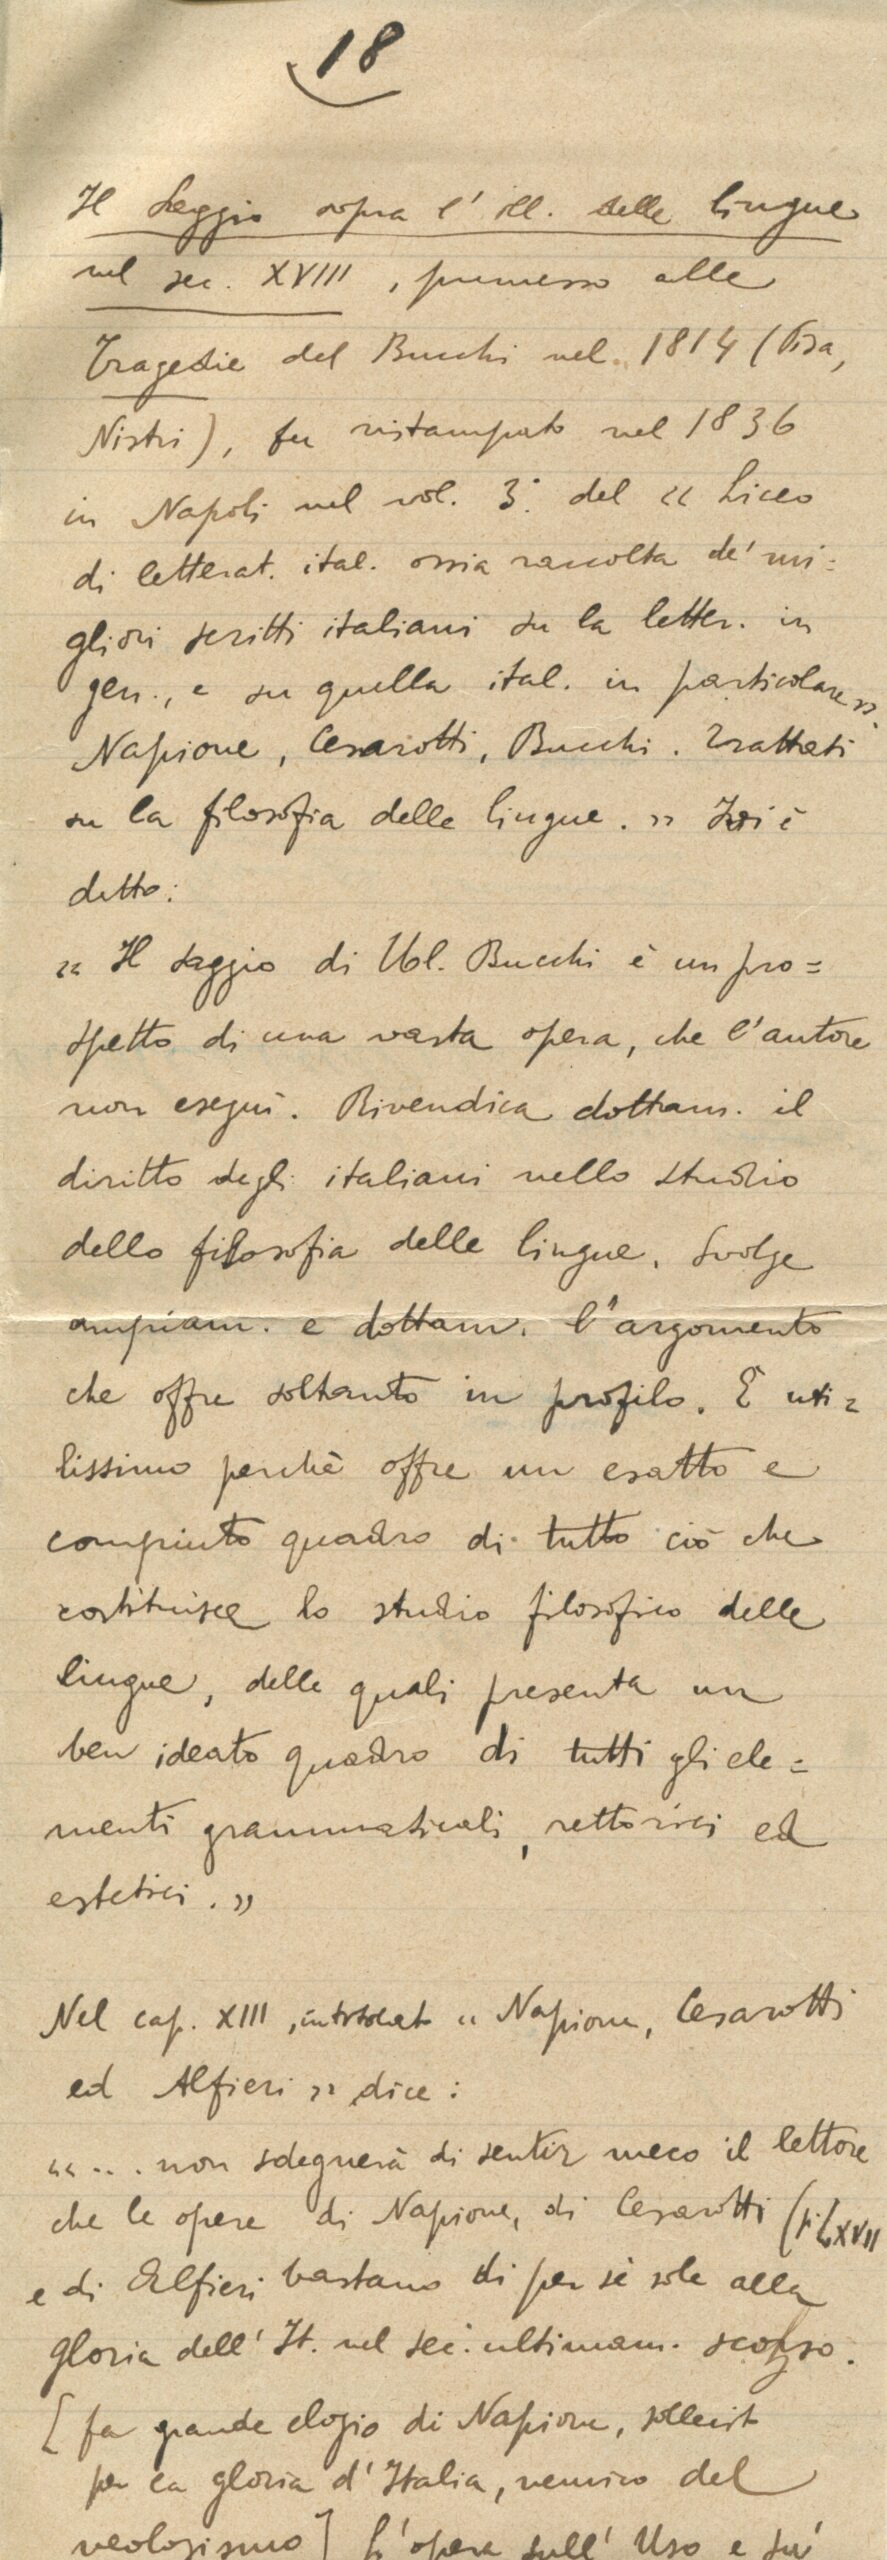 18
Il Saggio sopra l' ill. delle lingue
nel sec. XVIII, premesso alle
Tragedie del Bucchi nel 1814 (Pisa,
Nistri), fu ristampato nel 1836
in Napoli nel vol. 3.° del « Liceo
di letterat. ital. ossia raccolta de' mi=
gliori scritti italiani su la letter. in
gen., e su quella ital. in particolare ».
Napione, Cesarotti, Bucchi. Trattati
su la filosofia delle lingue. » Ivi è
detto:
« Il saggio di Ubl. Bucchi è un pro=
spetto di una vasta opera, che l'autore
non eseguì. Rivendica dottam. il
diritto degli italiani nello studio
dello filosofia delle lingue. Svolge
ampiam. e dottam. l'argomento
che offre soltanto in profilo. È uti=
lissimo perchè offre un esatto e
compiuto quadro di tutto ciò che
costituisce lo studio filosofico delle
lingue, delle quali presenta un
ben ideato quadro di tutti gli ele=
menti grammaticali, rettorici ed
estetici. »
Nel cap. XIII, intitolato « Napione, Cesarotti
ed Alfieri » dice:
« ... non sdegnerà di sentir meco il lettore
che le opere di Napione, di Cesarotti (p. LXVII
e di Alfieri bastano di per sè sole alla
gloria dell' It. nel sec. ultimam. scorso.
[fa grande elogio di Napione, sollecit
per la gloria d'Italia, nemico del
neologismo] L'opera sull' Uso e sui